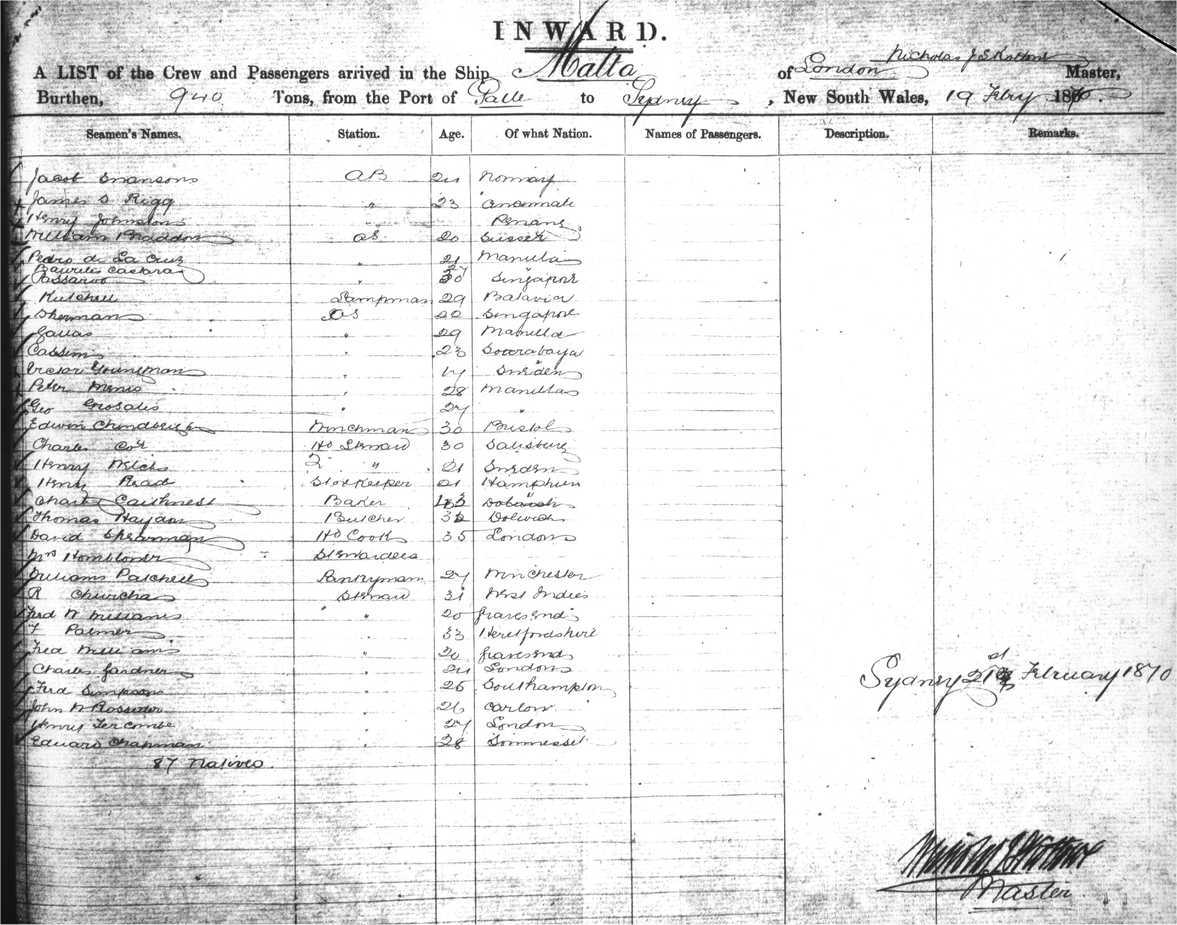 INWARD.
A LIST of the Crew and Passengers arrived in the Ship Malta of London Nicholas J Skottowe Master,
Burthen, 940 Tons, from the Port of Galle to Sydney, New South Wales, 19 Febry 1870.
Seamen's Names. Station. Age. Of what Nation. Names of Passengers. Description. Remarks.
Jacob Swansons AB 24 Norway
James S Rigg " 23 Cincinnate
Henry Johnston " Penang
William Braddon OS 20 Sussex
Pedro de La Cruz " 21 Manilla
27
Passaroo " 30 Singapor
Mitchell Lampman 29 Batavia
Sherman OS 20 Singapore
" 29 Manilla
Cassim " 23 Sourabaya
Victor Youngman " 17 Sweden
Peter " 28 Manilla
Geo " 27 "
Edwin Winchman 30 Bristol
Charles Cox Hd Steward 30 Salisbury
Henry Welch 2 " 21 Sweden
Henry Read Storekeeper 21
Charles Caithness Baker
Thomas Haydon Butcher 32 Dolwich
David Shearman Hd Cook 35 London
Mrs Homblower Stewardess
Williams Patchell Pantryman 27 Winchester
R Steward 31 West Indies
Fred W Williams " 20 Gravesend
F Palmer " 33 Herefordshire
Fred Williams " 20 Gravesend
Charles Gardner " 24 London
Fred Simpson " 26 Southampton
John W " 26 Carlow
Henry " 27 London
Edward Chapman " 28 Sommesset
87 Natives
Sydney 21st February 1870
Master